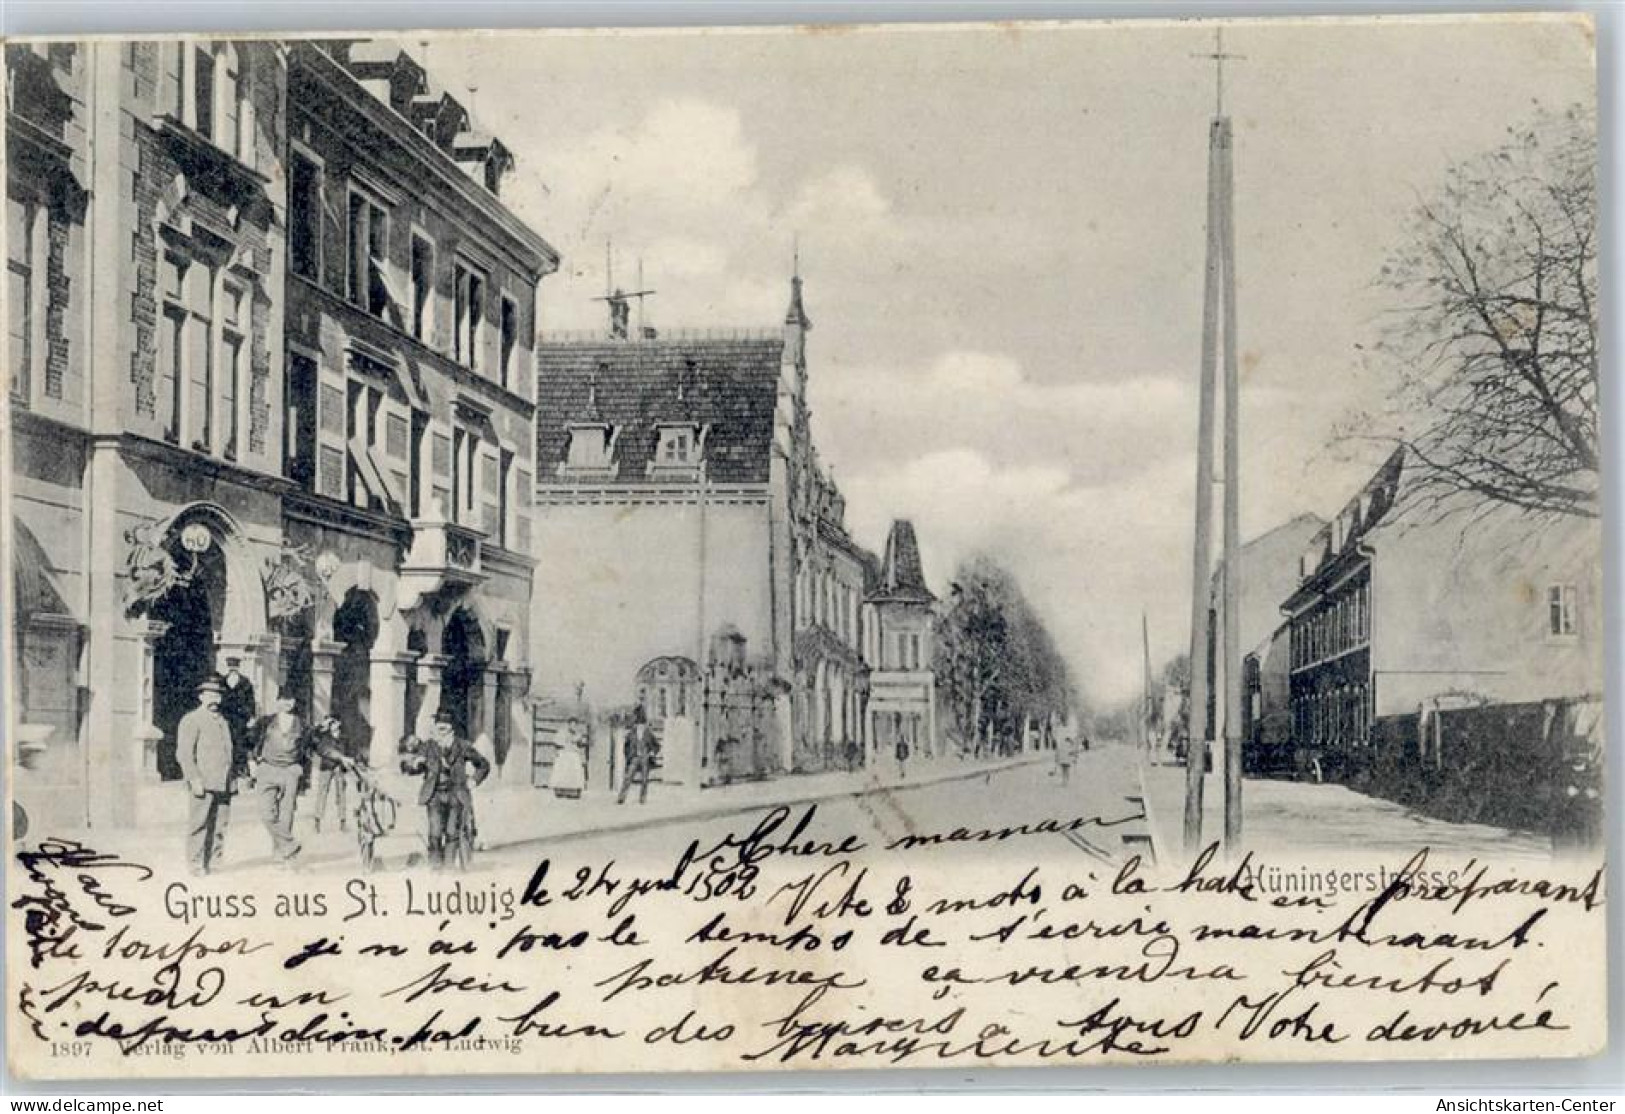 Chere maman
le 24 1902 Vite 2 mots à la hate en préparant
le souper je n'ai pas le temps de t'ecrire maintenant.
prend un peu patience ça viendra bientot
bien des baisers à tous Votre devouée
Marguerite
Gruss aus St. Ludwig
Hüningerstrasse
1897 Verlag von Albert Frank, St. Ludwig
Ansichtskarten-Center